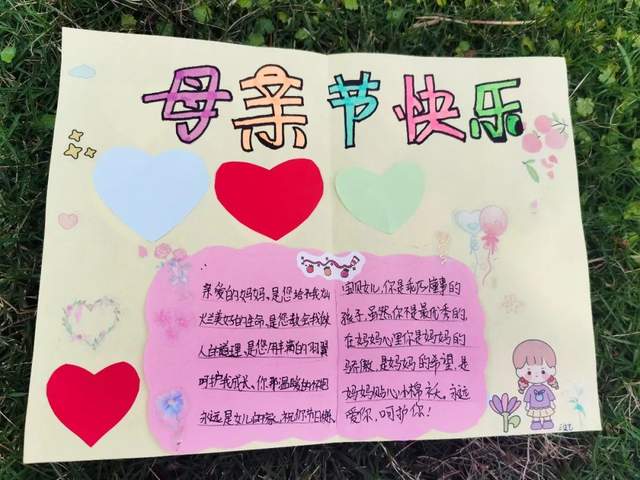 母亲节快乐
亲爱的妈妈，是您给予我灿
烂美好的生命，是您教会我做
人的道理，是您用丰满的羽翼
呵护我成长、你那温暖的怀抱
永远是女儿的家，祝你节日快乐
宝贝女儿，你是乖巧懂事的
孩子，虽然你不是最优秀的，
在妈妈心里你是妈妈的
骄傲，是妈妈的希望，是
妈妈贴心小棉袄。永远
爱你，呵护你！